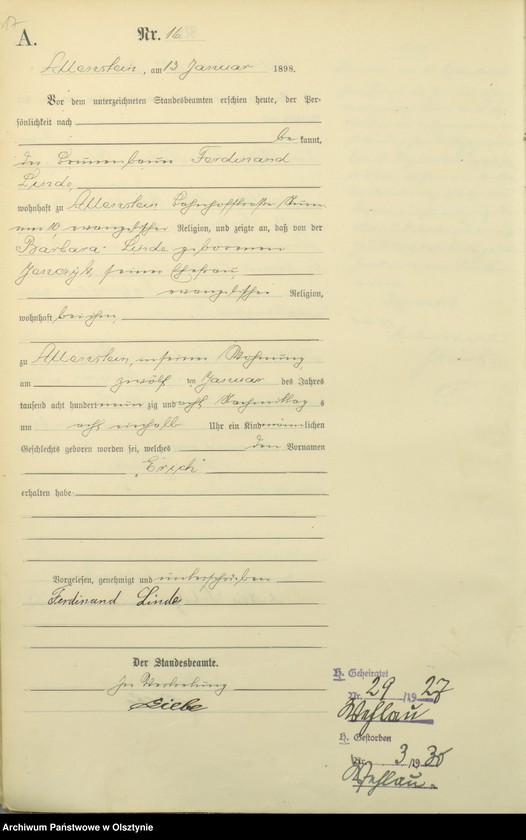 17
A.
Nr. 16
Allenstein, am 13 Januar 1898.
Vor dem unterzeichneten Standesbeamten erschien heute, der Per-
sönlichkeit nach
be kannt,
der Ferdinand
Linde
wohnhaft zu Allenstein Bahnhofstrasse Num-
mer 10, evangelischer Religion, und zeigte an, daß von der
Barbara Linde geborenen
seiner Ehefrau
evangelischer Religion,
wohnhaft bei ihm
zu Allenstein, in seiner Wohnung
am zwölf ten Januar des Jahres
tausend acht hundert neun zig und acht Nachmittag s
um acht einhalb Uhr ein Kind männlichen
Geschlechts geboren worden sei, welches den Vornamen
"Erich"
erhalten habe
Vorgelesen, genehmigt und unterschrieben
Ferdinand Linde
Der Standesbeamte.
In Vertretung
H. Geheiratet
Nr. 29 /1927
Wehlau
H. Gestorben
Nr. 3 /1930
Wehlau.
Archiwum Państwowe w Olsztynie